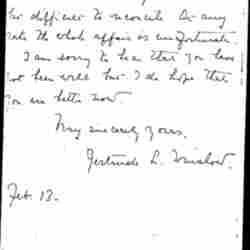 her difficult to reconcile. At any
rate the whole affair is unfortunate.
I am sorry to hear that you have
not been well but I do hope that
you are better now.
Very sincerely yours,
Gertrude L. Winslow.
Feb. 13.